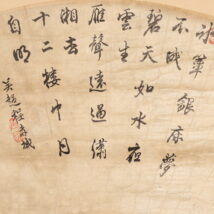 冰簟銀床夢
不成
碧天如水夜
雲生
雁聲遠過瀟
湘去
十二樓中月
自明